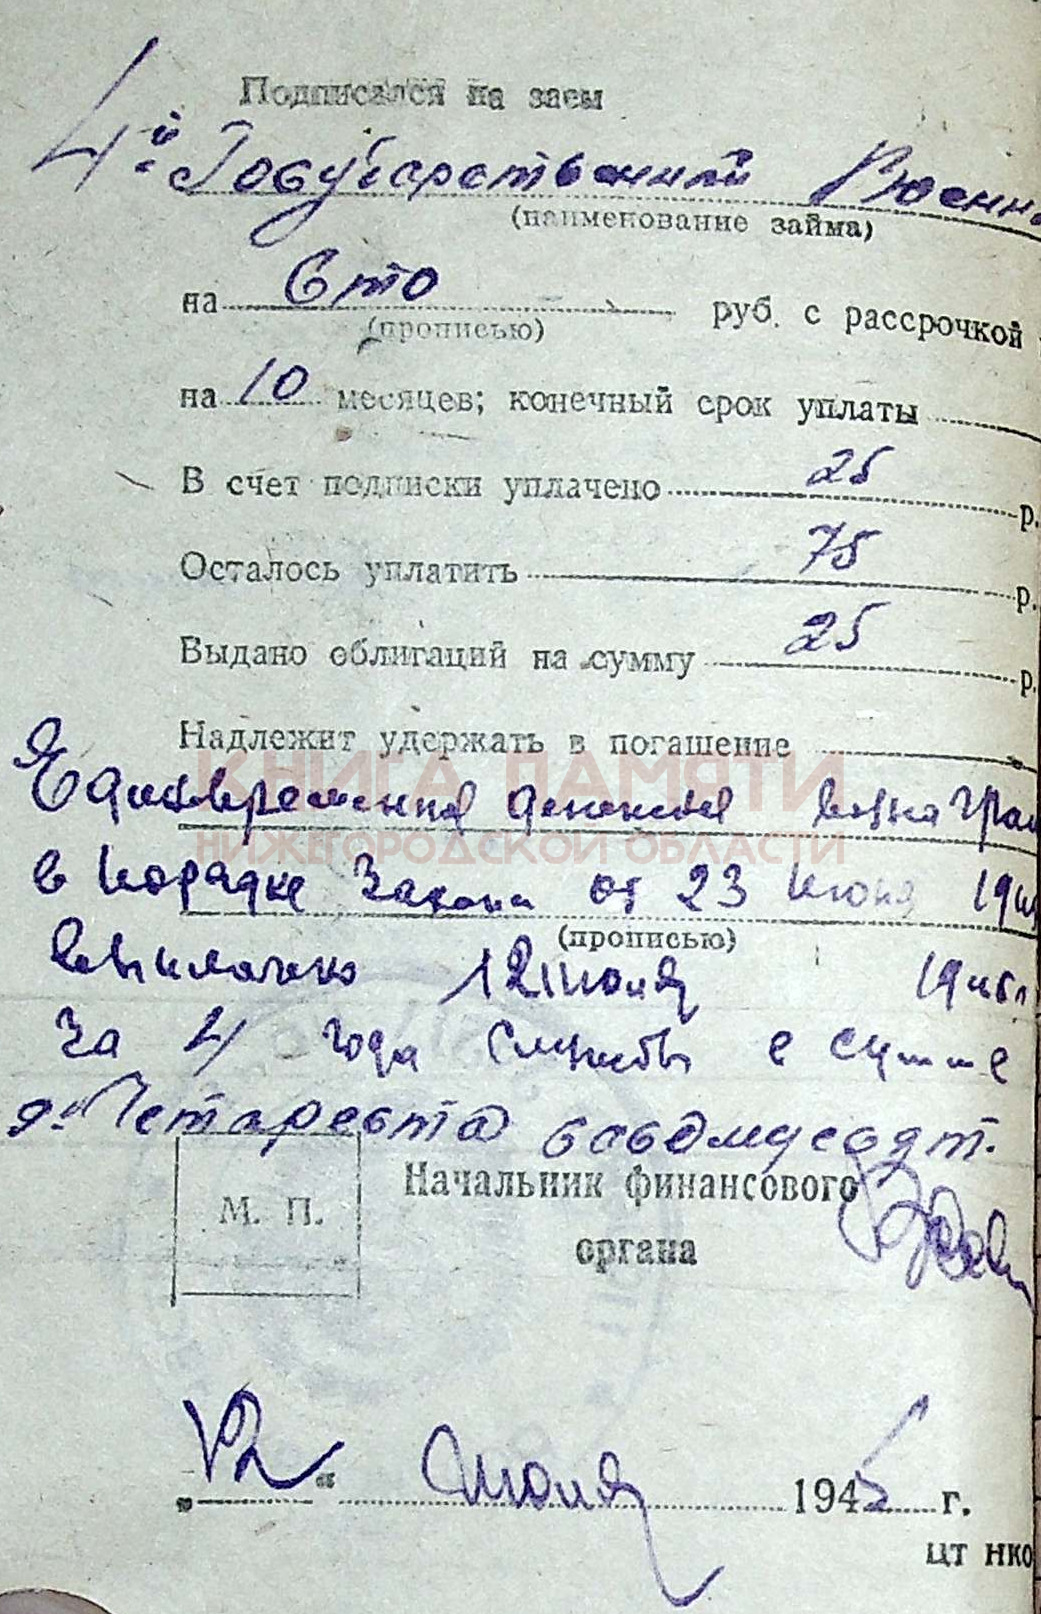 Подписался на заем
4й Государственный Военн
(наименование займа)
на Сто руб. с рассрочкой
(прописью)
на 10 месяцев; конечный срок уплаты
В счет подписки уплачено 25 р.
Осталось уплатить 75 р.
Выдано облигаций на сумму 25 р.
Надлежит удержать в погашение
КНИГА ПАМЯТИ
Единовременная денежная вознаграж
НИЖЕГОРОДСКОЙ ОБЛАСТИ
в порядке Закона от 23 Июня 194
(прописью)
выплачено 12 июля 194
за 4 года службы в сумме
Четыреста
М. П.
Начальник финансового
органа
„12“ июля 1945 г.
ЦТ НКО